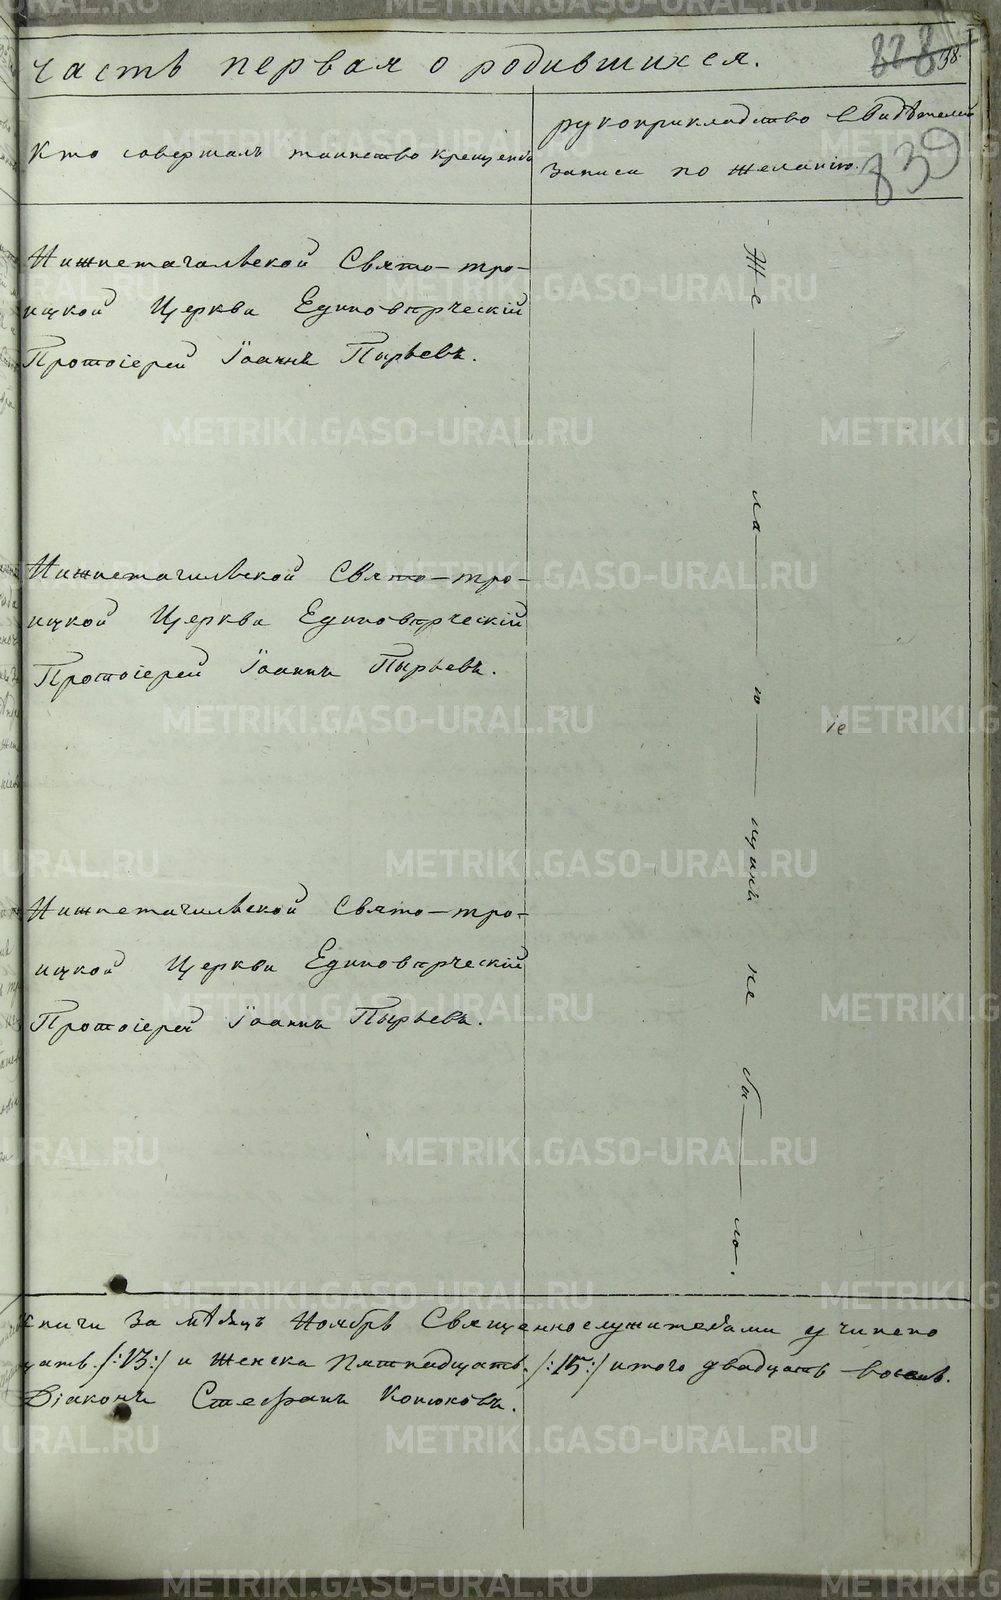 часть первая о родившихся.
828
38.
839
Кто совершалъ таинство крещенія
рукоприкладство свидѣтелей
записи по желанію.
Нижнетагильской Свято-тро-
ицкой Церкви Единовѣрческій
Протоіерей Іоаннъ Пырьевъ.
Нижнетагильской Свято-тро-
ицкой Церкви Единовѣрческій
Протоіерей Іоаннъ Пырьевъ.
Нижнетагильской Свято-тро-
ицкой Церкви Единовѣрческій
Протоіерей Іоаннъ Пырьевъ.
Же ла ю щихъ не бы ло.
іе
книги за мѣсяцъ Ноябрь Священнослужителями учинено
цать /:13:/ и женска пятнадцать /:15:/ итого двадцать восемь.
Діаконъ Стефанъ Конюховъ.
METRIKI.GASO-URAL.RU